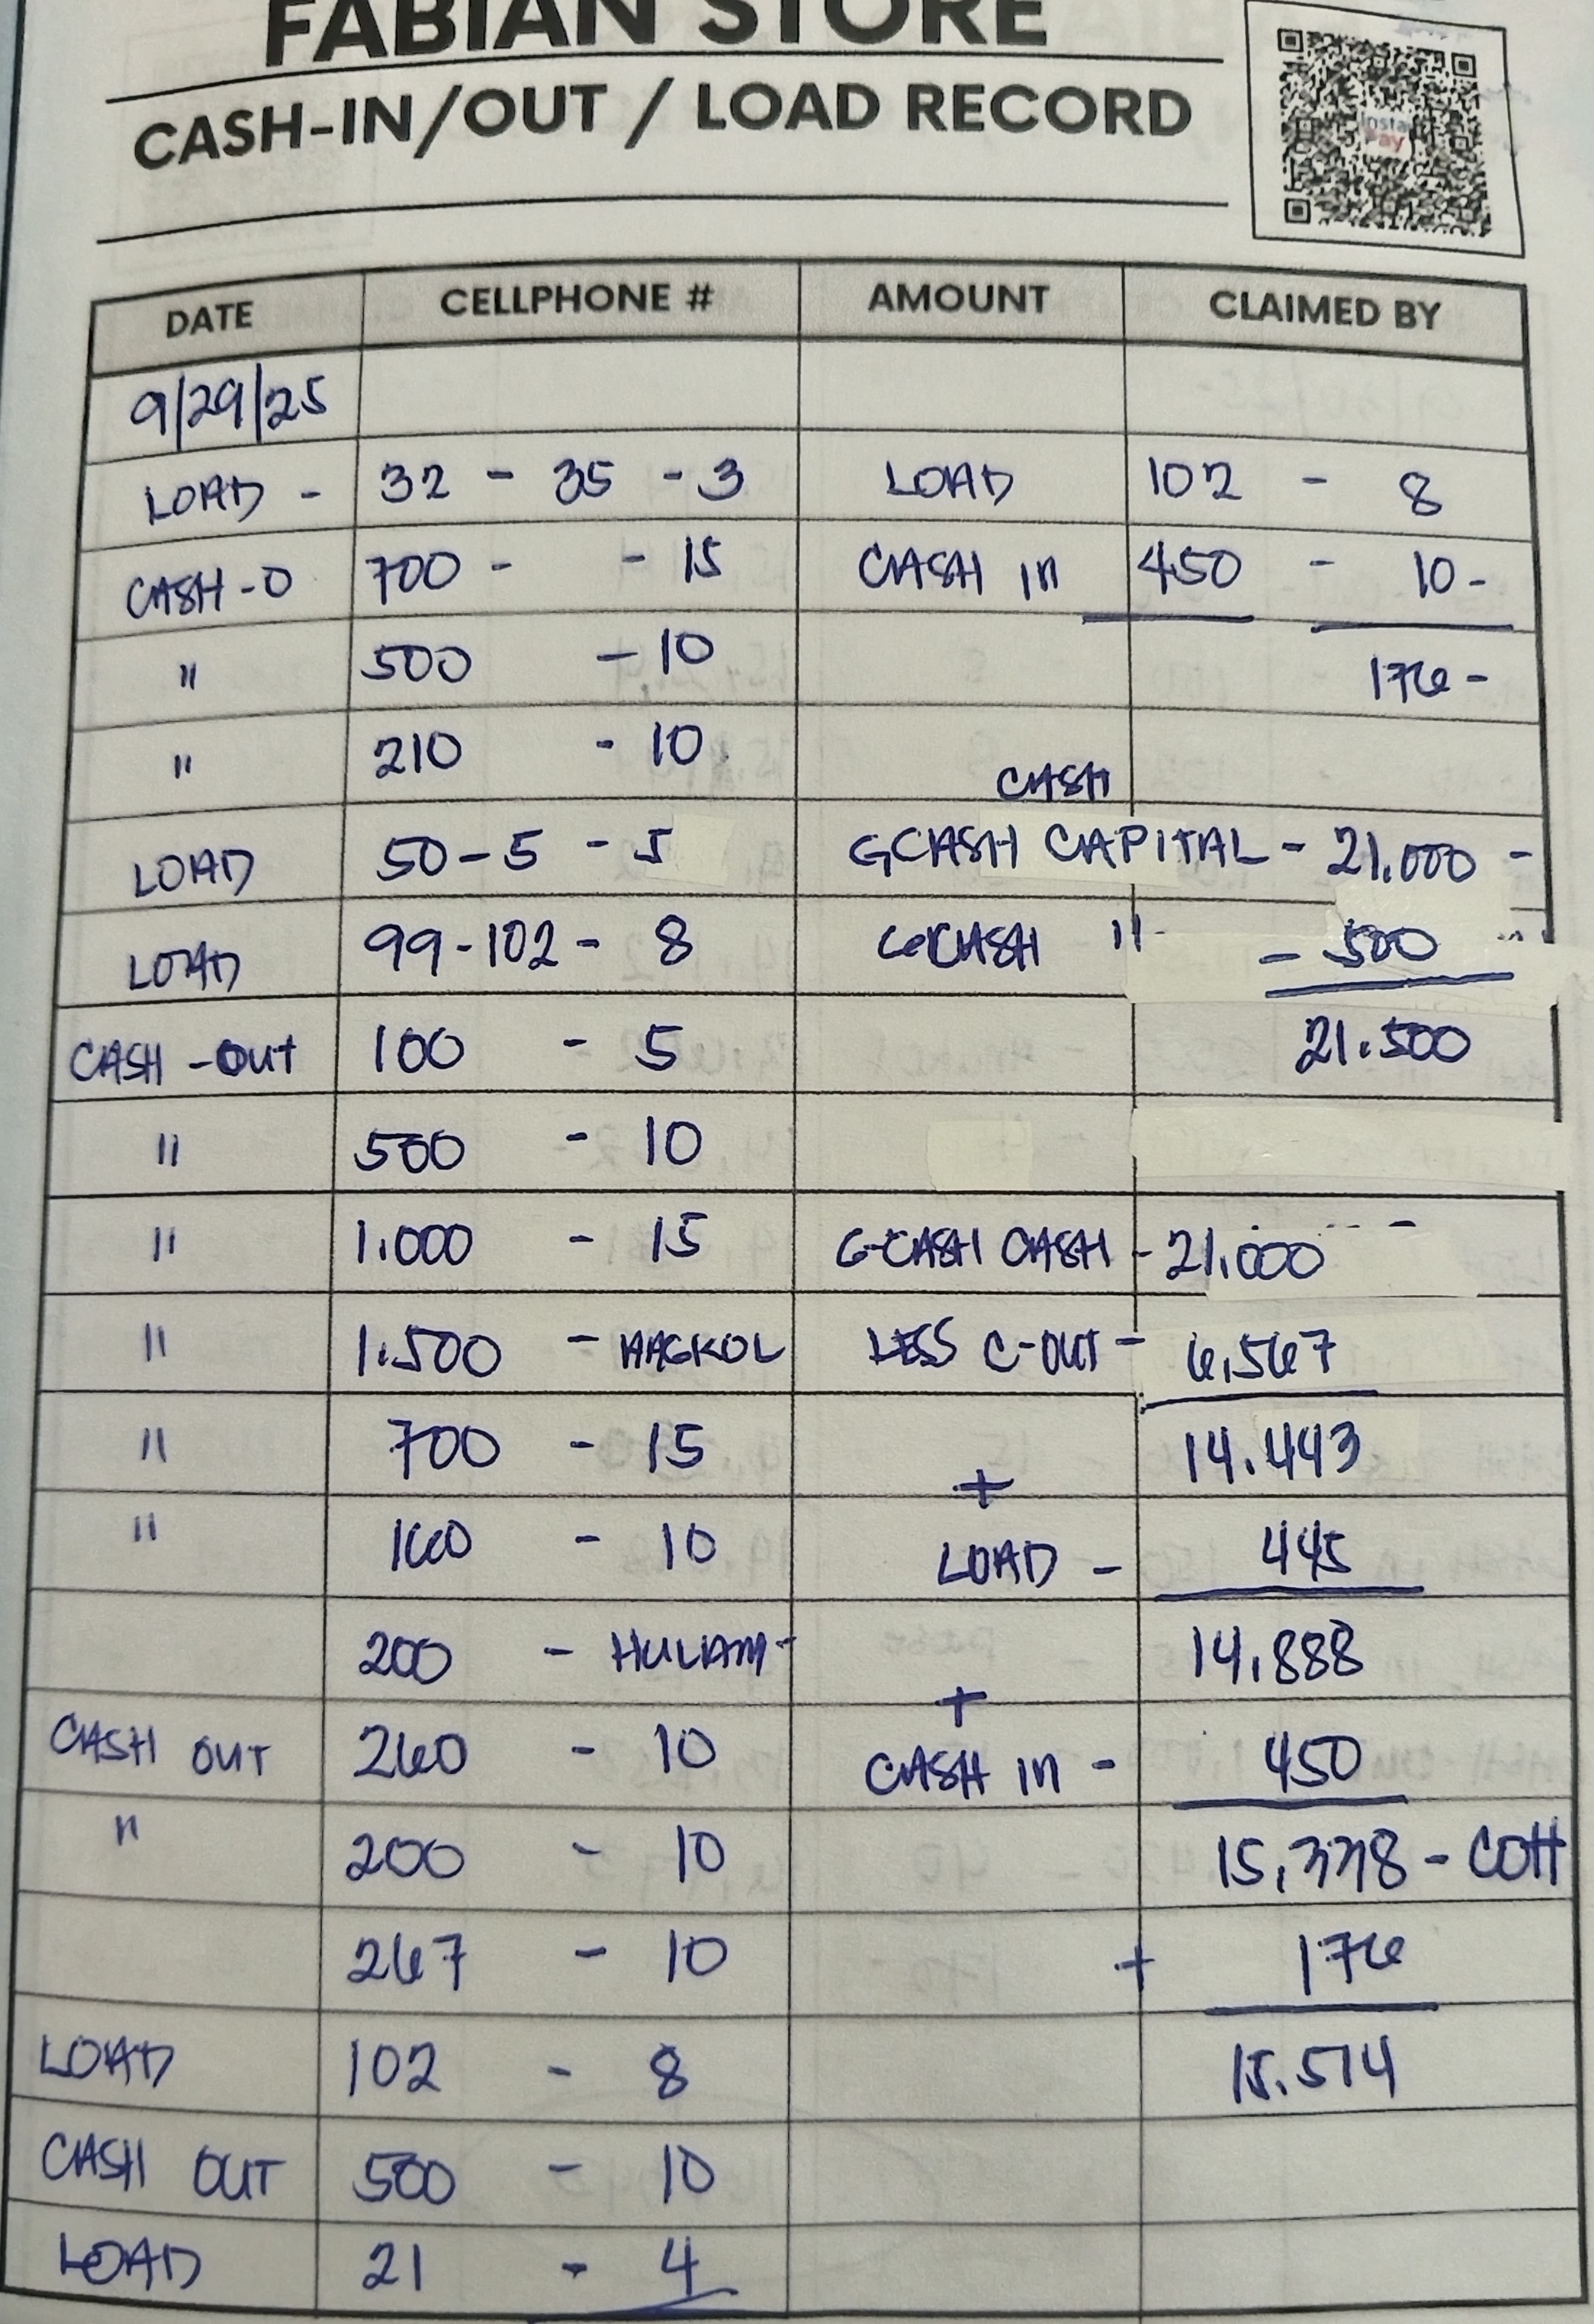 FABIAN STORE
CASH-IN/OUT / LOAD RECORD
Insta
Pay
DATE CELLPHONE # AMOUNT CLAIMED BY
9/29/25
LOAD - 32 - 35 - 3 LOAD 102 - 8
CASH-O 700 - - 15 CASH IN 450 - 10-
" 500 - 10 176 -
" 210 - 10
CASH
LOAD 50-5 - 5 GCASH CAPITAL - 21.000 -
LOAD 99-102 - 8 GCASH " - 500
CASH-OUT 100 - 5 21.500
" 500 - 10
" 1.000 - 15 G-CASH CASH - 21.000
" 1.500 - LESS C-OUT - 6,567
" 700 - 15 14.443
+
" 160 - 10 LOAD - 445
200 - HULAM - 14,888
+
CASH OUT 260 - 10 CASH IN - 450
" 200 - 10 15,338 - COH
267 - 10 + 176
LOAD 102 - 8 15.514
CASH OUT 500 - 10
LOAD 21 - 4